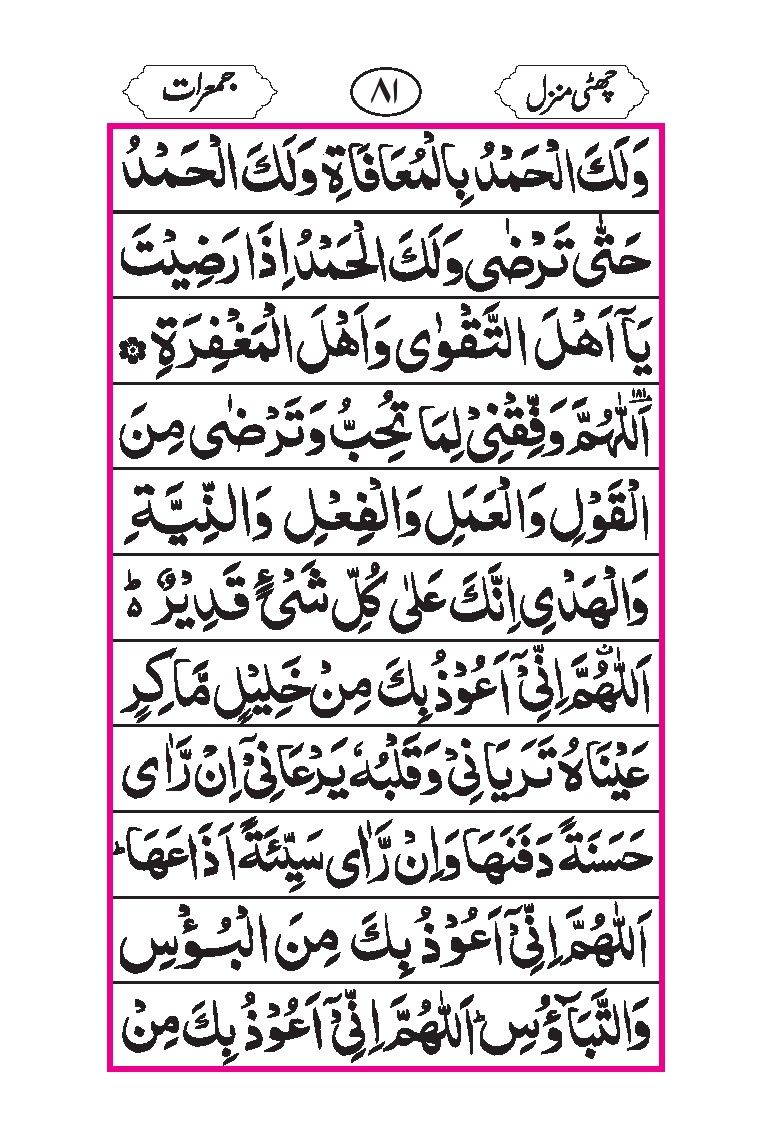 چھٹی منزل
۸۱
جمعرات
وَلَكَ الْحَمْدُ بِالْمُعَافَاةِ وَلَكَ الْحَمْدُ
حَتّٰى تَرْضٰى وَلَكَ الْحَمْدُ اِذَا رَضِيْتَ
يَآ اَهْلَ التَّقْوٰى وَاَهْلَ الْمَغْفِرَةِ ۞
اَللّٰهُمَّ وَفِّقْنِيْ لِمَا تُحِبُّ وَتَرْضٰى مِنَ
الْقَوْلِ وَالْعَمَلِ وَالْفِعْلِ وَالنِّيَّةِ
وَالْهَدْيِ اِنَّكَ عَلٰى كُلِّ شَيْءٍ قَدِيْرٌ ؕ
اَللّٰهُمَّ اِنِّيْٓ اَعُوْذُ بِكَ مِنْ خَلِيْلٍ مَّاكِرٍ
عَيْنَاهُ تَرَيَانِيْ وَقَلْبُهٗ يَرْعَانِيْٓ اِنْ رَّاٰى
حَسَنَةً دَفَنَهَا وَاِنْ رَّاٰى سَيِّئَةً اَذَاعَهَا ؕ
اَللّٰهُمَّ اِنِّيْٓ اَعُوْذُ بِكَ مِنَ الْبُؤْسِ
وَالتَّبَآؤُسِ ؕ اَللّٰهُمَّ اِنِّيْٓ اَعُوْذُ بِكَ مِنْ